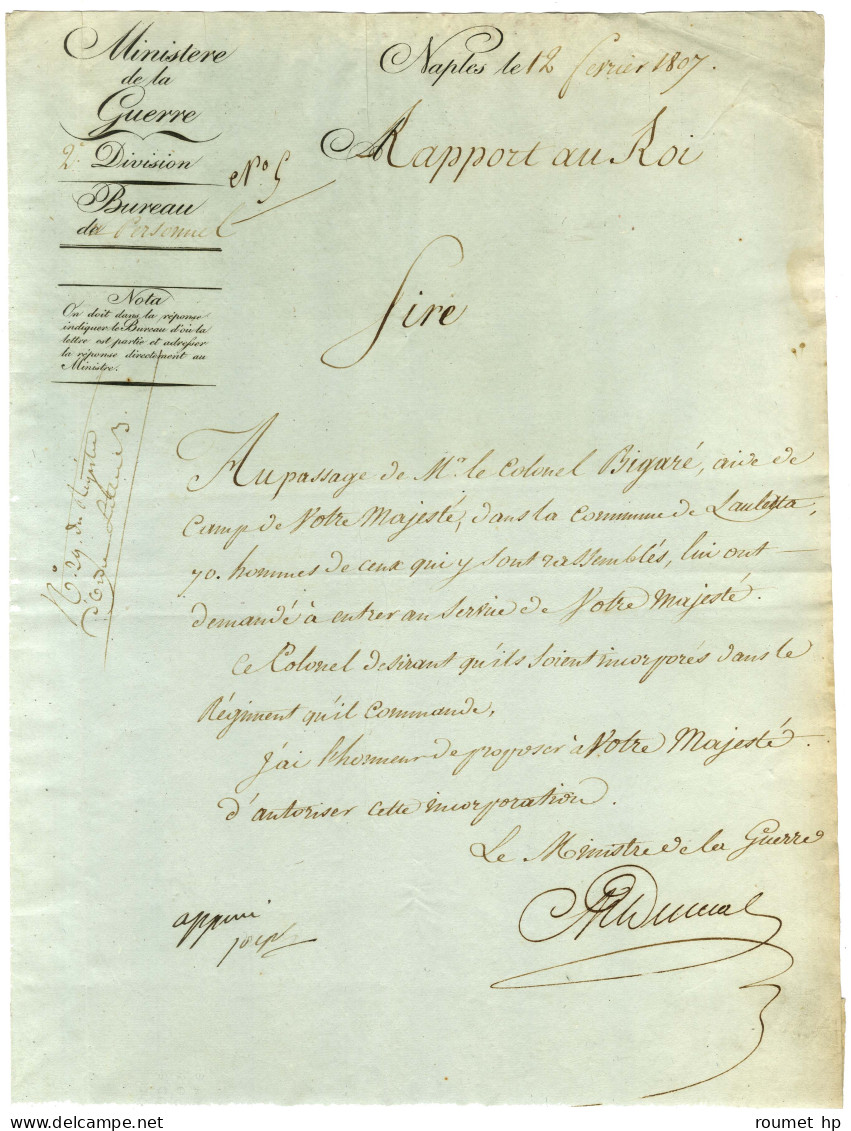 Ministere
de la
Guerre
2e Division
Bureau
de Personnel
No 5
Nota
On doit dans la réponse
indiquer le Bureau d'où la
lettre est partie et adresser
la réponse directement au
Ministre.
Naples le 12 fevrier 1807.
Rapport au Roi
Sire
Au passage de Mr. le Colonel Bigaré, aide de
Camp de Votre Majesté, dans la commune de Lauletta,
70. hommes de ceux qui y sont rassemblés, lui ont
demandé à entrer au service de Votre Majesté.
Ce Colonel desirant qu'ils soient incorporés dans le
Régiment qu'il commande,
J'ai l'honneur de proposer à Votre Majesté
d'autoriser cette incorporation.
Le Ministre de la Guerre
Dumas
appuvé
joseph
No. 29. du Registre